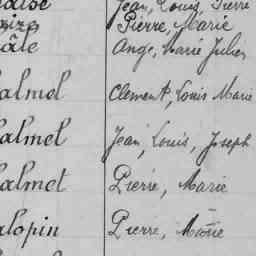 Jean, Louis, Pierre
Pierre, Marie
Ange, Marie Julien
almel Clement, Louis Marie
almel Jean, Louis, Joseph
almet Pierre, Marie
alopin Pierre, Marie